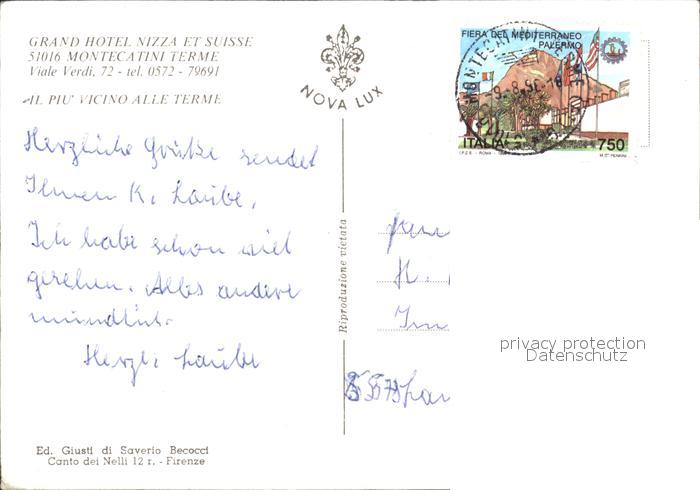 GRAND HOTEL NIZZA ET SUISSE
51016 MONTECATINI TERME
Viale Verdi, 72 - tel. 0572 - 79691
IL PIU' VICINO ALLE TERME
NOVA LUX
FIERA DEL MEDITERRANEO
PALERMO
MONTECATINI
ITALIA
750
I.P.Z.S. - ROMA
Herzliche Grüße sendet
Ihnen K. Laube.
Ich habe schon viel
gesehen. Alles andere
mündlich.
Herzl. Laube
Riproduzione vietata
H.
privacy protection
Datenschutz
Ed. Giusti di Saverio Becocci
Canto dei Nelli 12 r. - Firenze